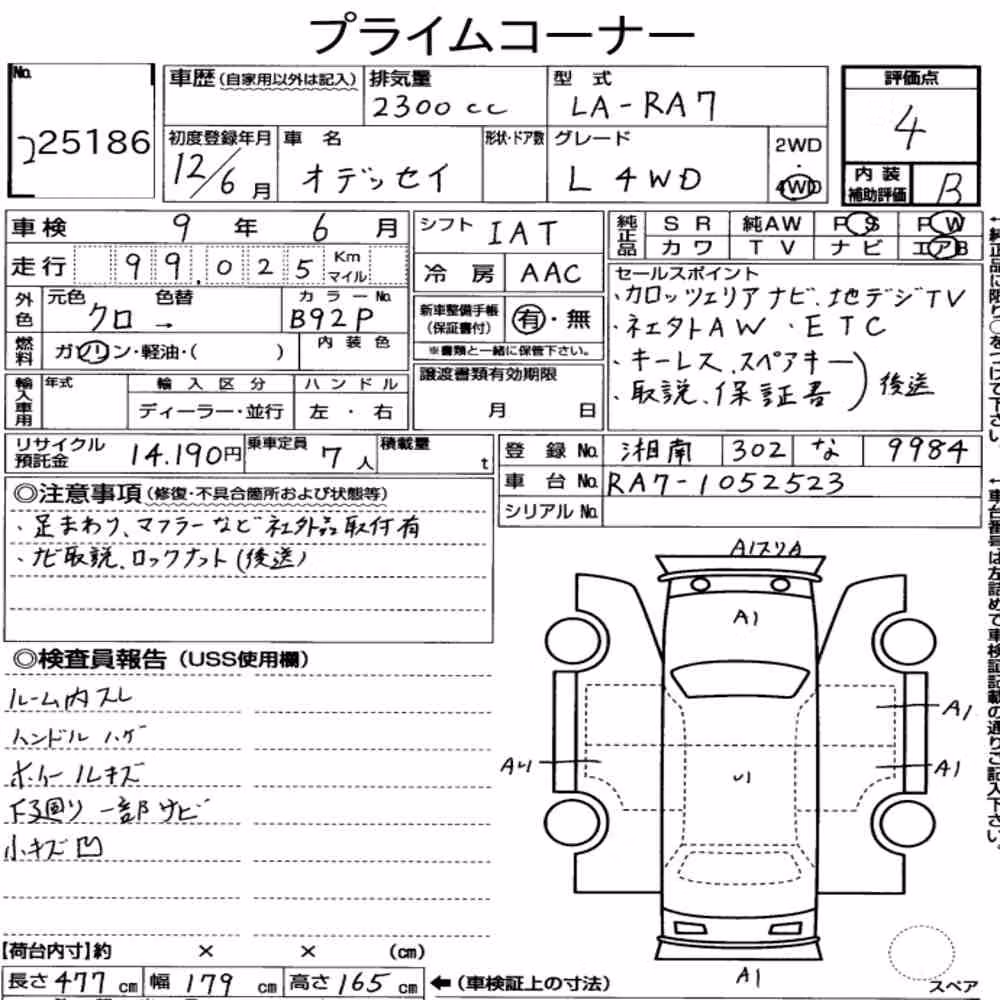 プライムコーナー
No. 225186
車歴(自家用以外は記入) 排気量 2300cc 型式 LA-RA7
評価点 4
初度登録年月 12/6月 車名 オデッセイ 形状・ドア数 グレード L 4WD 2WD・4WD
内装補助評価 B
車検 9年6月 シフト IAT 純正品 SR 純AW PS PW
走行 99,025 Km マイル 冷房 AAC カワ TV ナビ エアB
外色 元色 クロ 色替 → カラーNo. B92P
燃料 ガソリン・軽油・( ) 内装色
新車整備手帳(保証書付) 有・無
※書類と一緒に保管下さい。
譲渡書類有効期限 月 日
セールスポイント
・カロッツェリアナビ、地デジTV
・社外AW ・ETC
・キーレス、スペアキー
・取説、保証書 後送
輸入車用 年式 輸入区分 ハンドル
ディーラー・並行 左・右
リサイクル預託金 14,190円 乗車定員 7人 積載量 t
登録No. 湘南 302 な 9984
車台No. RA7-1052523
シリアルNo.
◎注意事項(修復・不具合箇所および状態等)
・足まわり、マフラーなど社外品取付有
・ナビ取説、ロックナット(後送)
◎検査員報告(USS使用欄)
ルーム内スレ
ハンドルハゲ
ホイールキズ
下廻り一部サビ
小キズ凹
A1スリA
A1
A1
A1
U1
A1
スペア
【荷台内寸】約 × × (cm)
長さ 477cm 幅 179cm 高さ 165cm ←(車検証上の寸法)
↑純正品に限り○をつけて下さい。
↑車台番号は左詰めで車検証記載の通りご記入下さい。